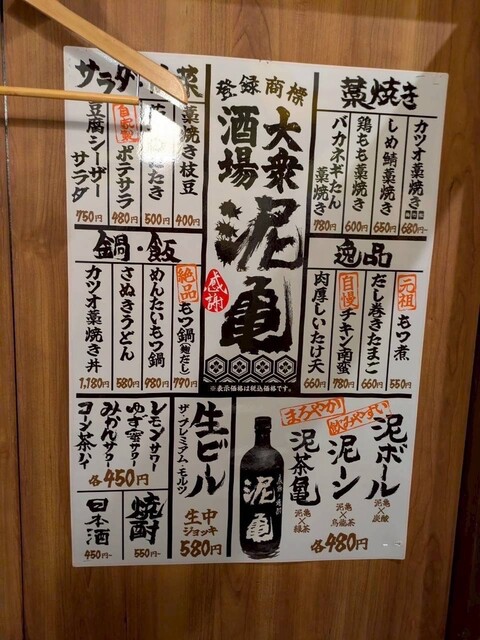 登録商標
大衆
酒場
泥亀
感謝
※表示価格は税込価格です。
藁焼き
カツオ藁焼き
680円~
しめ鯖藁焼き
650円
鶏もも藁焼き
600円
バカネギたん
藁焼き
780円
逸品
元祖
もつ煮
550円
だし巻きたまご
660円
自慢
チキン南蛮
780円
肉厚しいたけ天
660円
サラダ
菜
藁焼き枝豆
400円
たたき
500円
自家製
ポテサラ
480円
豆腐シーザー
サラダ
750円
鍋・飯
絶品
もつ鍋
790円
めんたいもつ鍋
980円
さぬきうどん
580円
カツオ藁焼き丼
1,180円
泥ボール
泥亀
×
炭酸
飲みやすい
泥ーン
泥亀
×
烏龍茶
まろやか
泥茶亀
泥亀
×
緑茶
各480円
泥亀
生ビール
ザ・プレミアム・モルツ
生中
ジョッキ
580円
レモンサワー
ゆず蜜サワー
みかんサワー
コーン茶ハイ
各450円
焼酎
550円~
日本酒
450円~